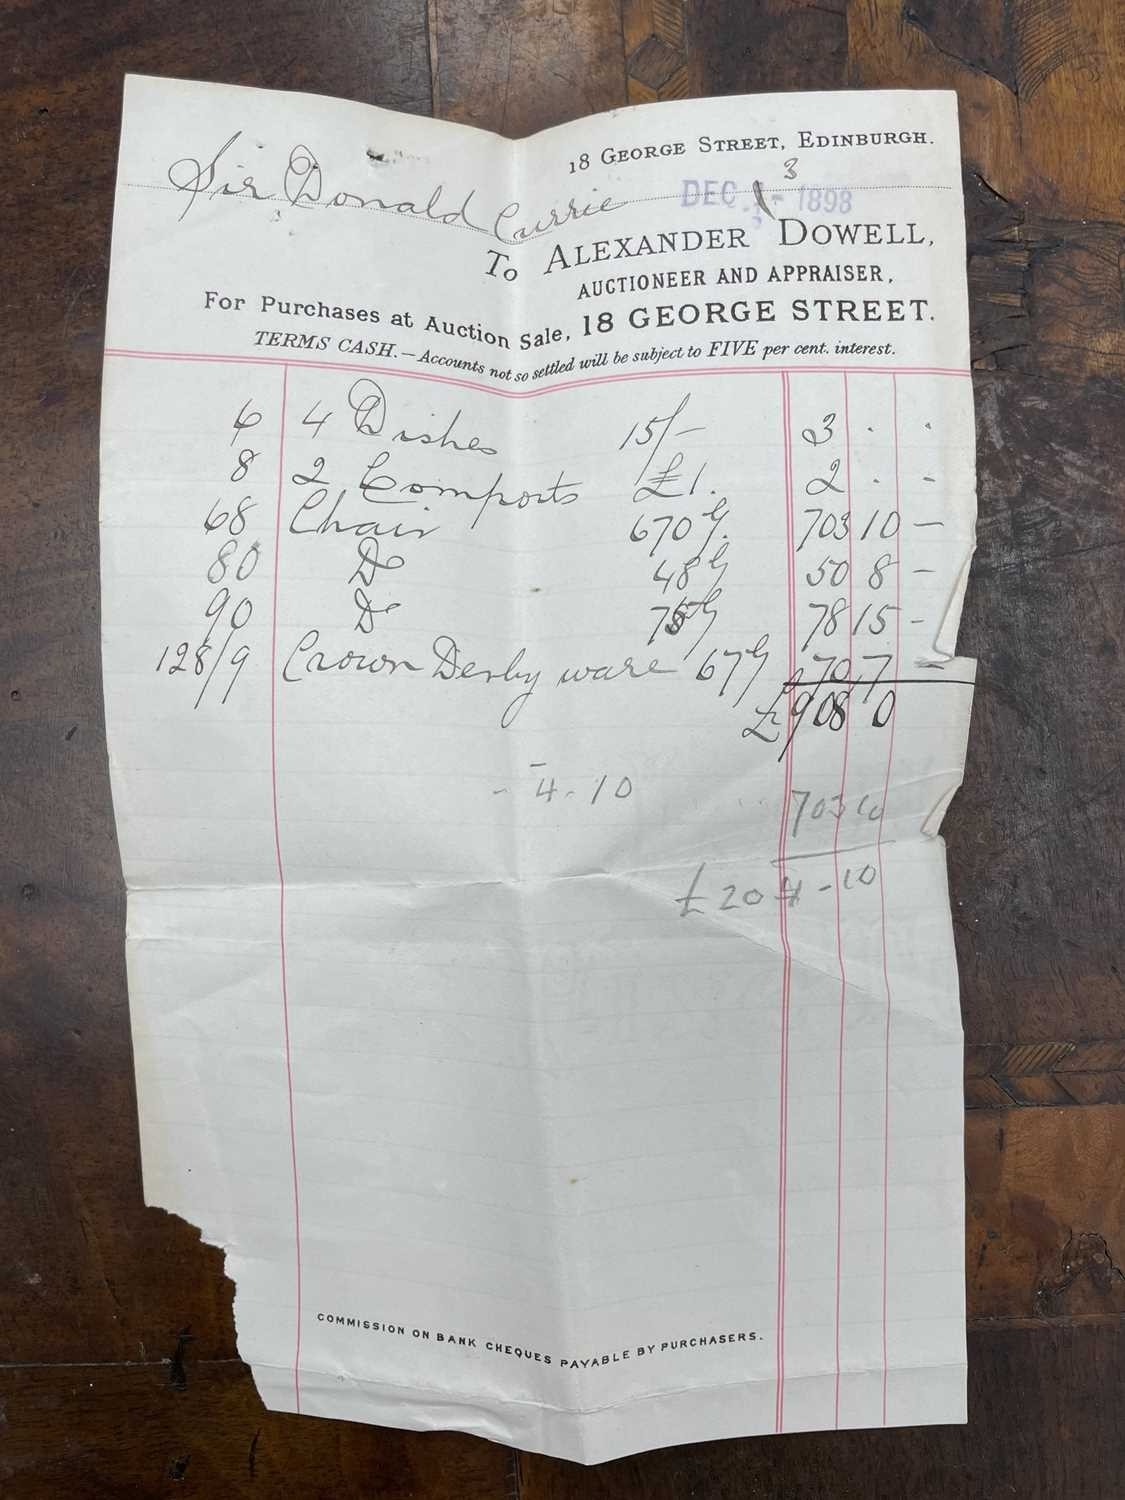 18 GEORGE STREET, EDINBURGH.
3
Sir Donald Currie DEC 1 - 1898
To ALEXANDER DOWELL,
AUCTIONEER AND APPRAISER,
For Purchases at Auction Sale, 18 GEORGE STREET.
TERMS CASH.—Accounts not so settled will be subject to FIVE per cent. interest.
6 4 Dishes 15/- 3 . .
8 2 Comports £1. 2 . -
68 Chair 670 G. 703 10 -
80 Do 48 G 50 8 -
90 Do 75 G 78 15 -
128/9 Crown Derby ware 67 G 70 7 -
£908 0
- 4 - 10
703 10
£ 204 - 10
COMMISSION ON BANK CHEQUES PAYABLE BY PURCHASERS.